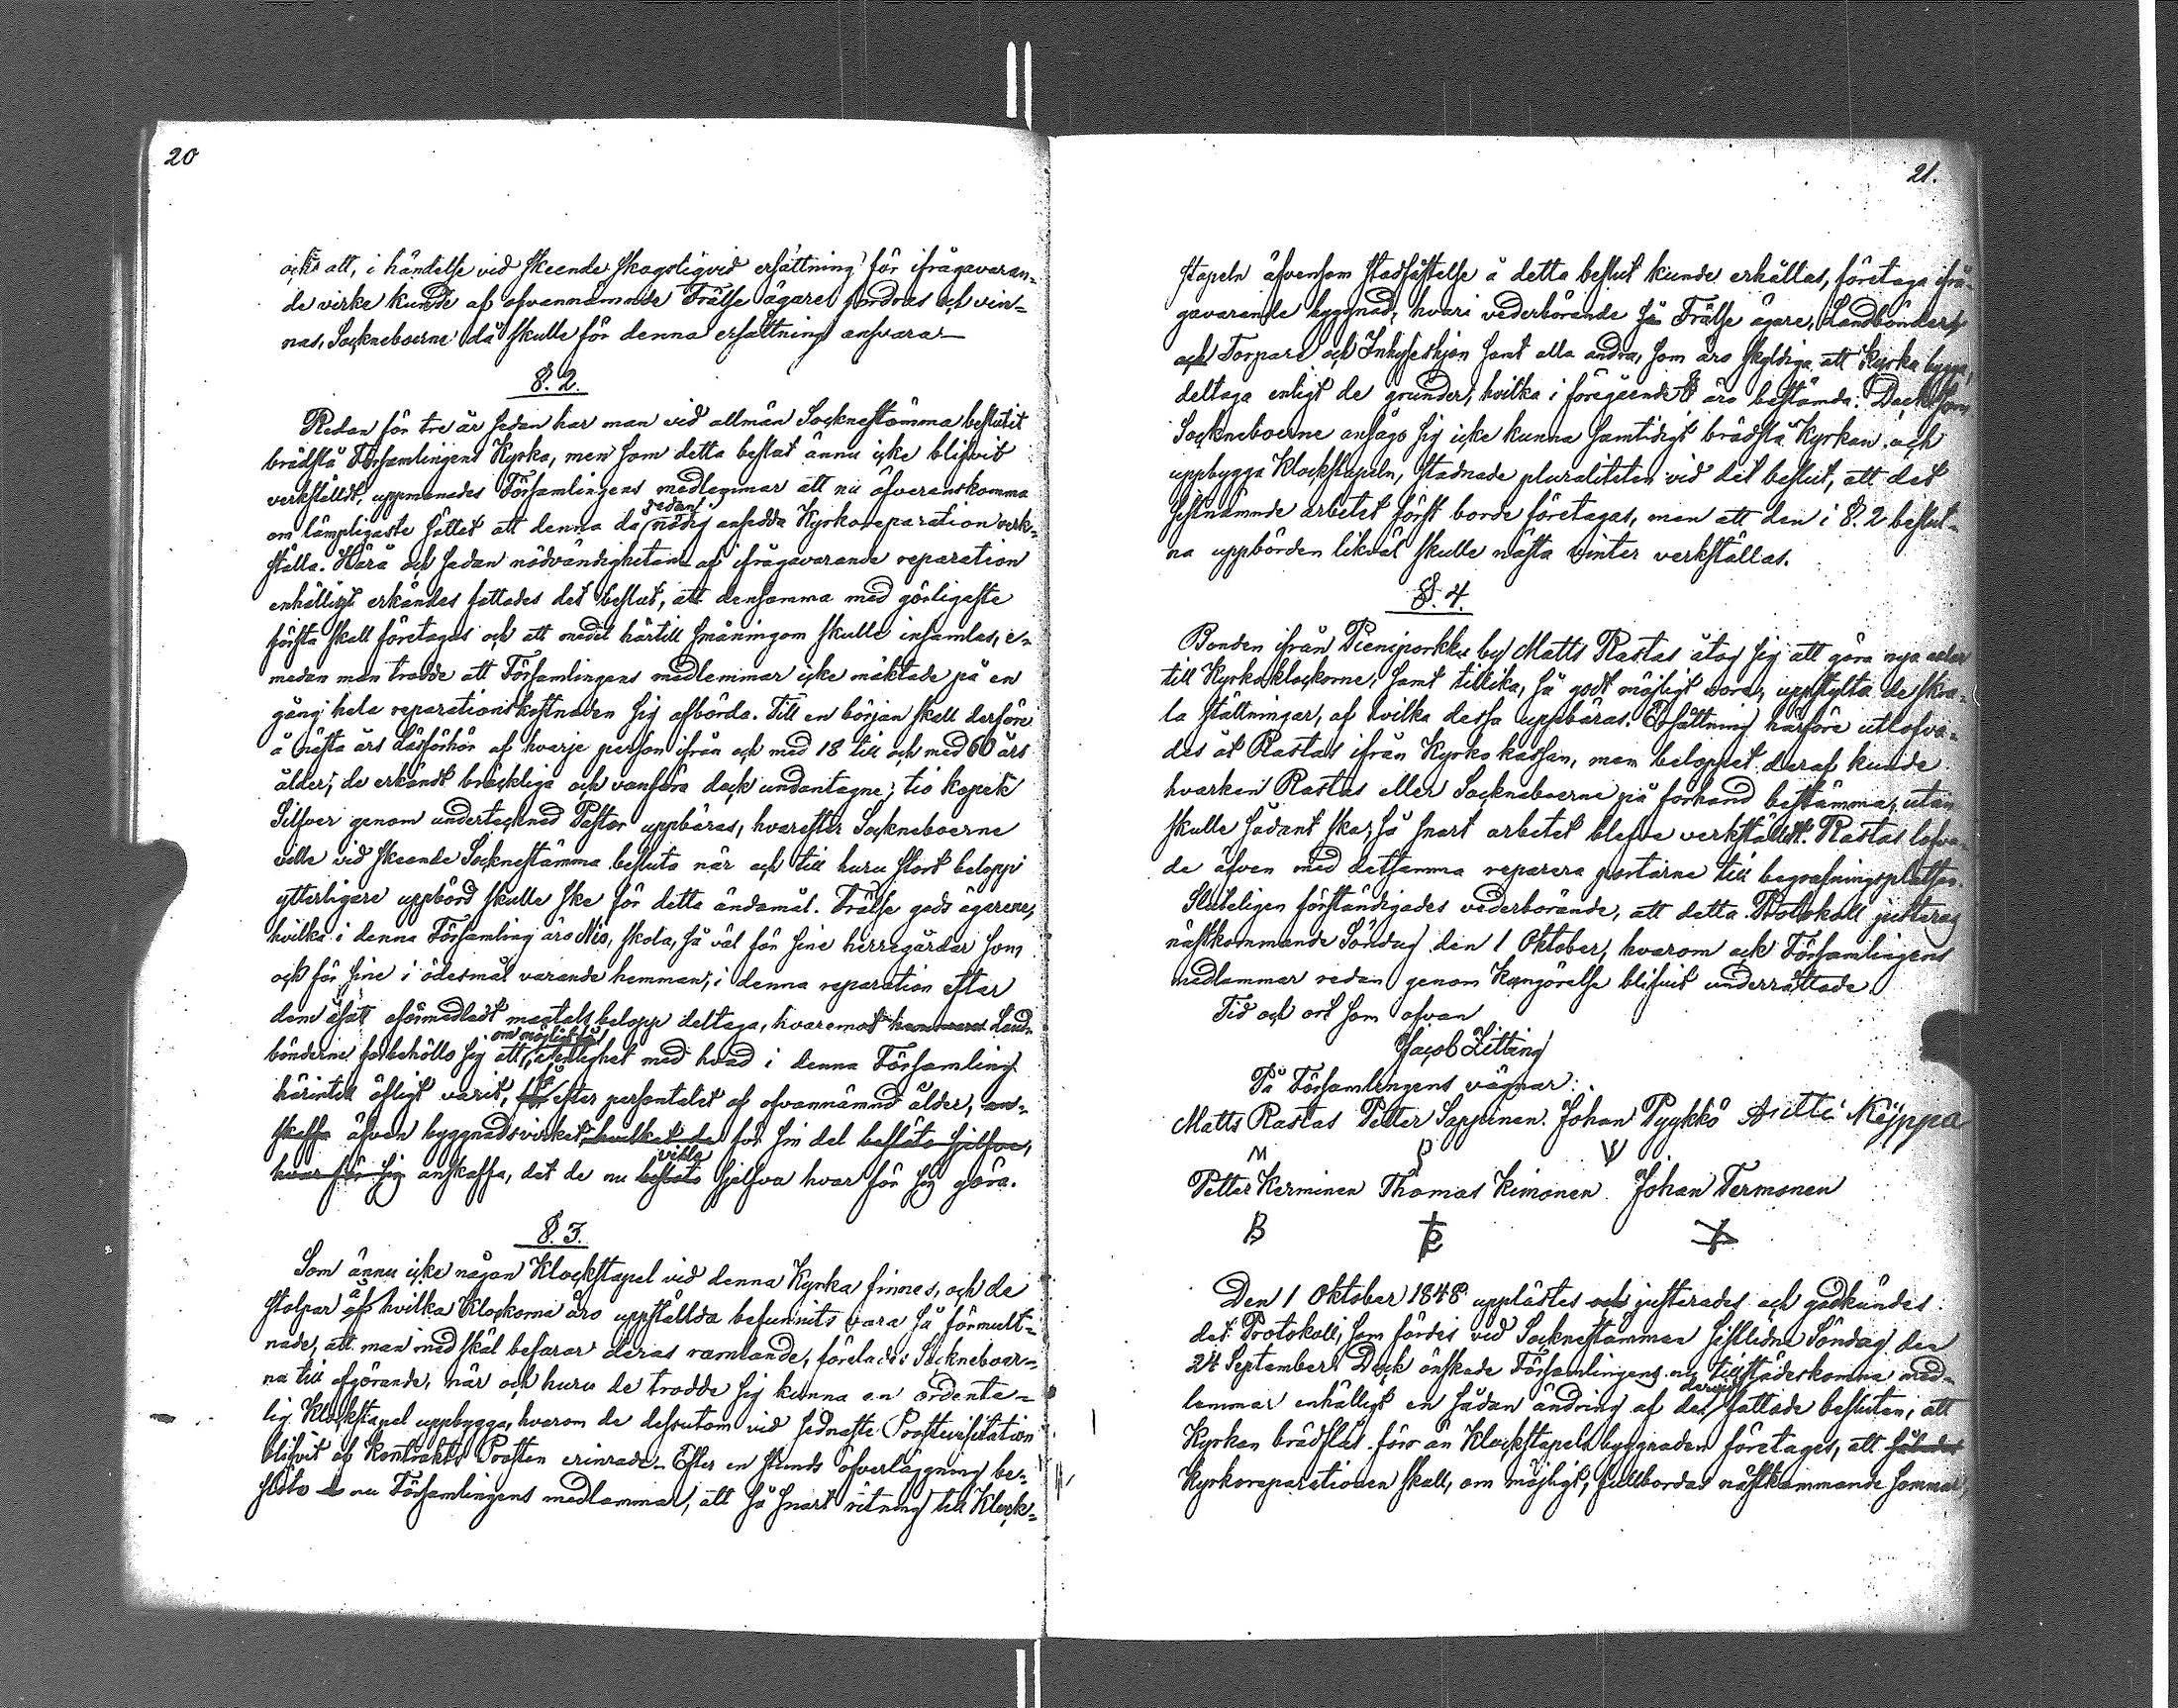 20
också att, i händelse vid skeende skogsliqvid ersättning för ifrågavaran-
de virke kunde af ofvannämnde Frälse ägare fordras och vin-
nas, Sockneboerne då skulle för denna ersättning ansvara.—
§. 2.
Redan för tre år sedan har man vid allmän Socknestämma beslutit
brädslå Församlingens Kyrka, men som detta beslut ännu icke blifvit
verkstäldt, uppmanades Församlingens medlemmar att nu öfverenskomma
om lämpligaste sättet att denna då redan nödig ansedda Kyrkoreparation verk-
ställa. Härå och sedan nödvändigheten af ifrågavarande reparation
enhälligt erkändes fattades det beslut, att densamma med görligaste
första skall företagas och att medel härtill småningom skulle insamlas, e-
medan man trodde att Församlingens medlemmar icke mäktade på en
gång hela reparationskostnaden sig afbörda. Till en början skall derföre
å nästa års läseförhör af hvarje person ifrån och med 18 till och med 60 års
ålder, de erkändt bräckliga och vanföra dock undantagne, tio kopek
Silfver genom undertecknad Pastor uppbäras, hvarefter Sockneboerne
ville vid skeende Sockenstämma besluta när och till huru stort belopp
ytterligare uppbörd skulle ske för detta ändamål. Frälse gods ägarene,
hvilka i denna Församling äro Nio, skola, så väl för sine herregårdar som
ock för sine i ödesmål varande hemman, i denna reparation efter
dem åsatt oförmedladt mantals belopp deltaga, hvaremot Land-
bönderne förbehöllo sig att, om möjligt så i enlighet med hvad i denna Församling
härintil öfligt varit, efter persontalet af ofvannämnd ålder, an-
skaffa äfven byggnadsvirket hvilket de för sin del besluto sjelfve,
hvar för sig anskaffa, det de nu ville besluto sjelfva hvar för sig göra.
§. 3.
Som ännu icke någon Klockstapel vid denna Kyrka finnes, och de
stolpar å af hvilka Klockorna äro uppställda befunnits vara så förmult-
nade, att man med skäl befarar deras ramlande, förelades Sockneboer-
na till afgörande, när och huru de trodde sig kunna en ordente-
lig Klockstapel uppbygga, hvarom de dessutom vid sednaste Prostevisitation
blifvit af Kontrakts Prosten erinrade. Efter en stunds öfverläggning be-
slöto nu Församlingens medlemmar, att så snart ritning till Klock-
21.
stapeln äfvensom stadfästelse å detta beslut kunde erhållas, företaga ifrå-
gavarande byggnad, hvari vederbörande Frälse ägare, Landbönder
och Torpare och Inhyseshjon samt alla andra, som äro skyldiga att Kyrka bygga,
deltaga enligt de grunder, hvilka i föregående § äro bestämda. Dock som
Sockneboerne ansågo sig icke kunna samtidigt brädslå Kyrkan och
uppbygga Klockstapeln, stadnade pluraliteten vid det beslut, att det
sistnämnde arbetet först borde företagas, men att den i §. 2 beslut-
na uppbörden likväl skulle nästa vinter verkställas.
§. 4.
Bonden ifrån Pieniporkku by Matts Rastas åtog sig att göra nya axlar
till Kyrkoklockorne, samt tillika, så godt möjligt vore, uppstylta de
ställningar, af hvilka dessa uppbäras. Ersättning härföre utlofva-
des åt Rastas ifrån Kyrko kassan, men beloppet deraf kunde
hvarken Rastas eller Sockneboerne på förhand bestämma, utan
skulle sådant ske, så snart arbetet blefve verkstäldt. Rastas lofva-
de äfven med detsamma reparera portarne till begrafningsplatsen.
Sluteligen förständigades vederbörande, att detta Protokoll justeras
nästkommande Söndag den 1 Oktober, hvarom ock Församlingens
medlemmar redan genom Kungörelse blifvit underrättade.
Tid och ort som ofvan
Jacob Zitting
På Församlingens vägnar:
Matts Rastas Petter Sappinen. Johan Pyykkö Antti Näppä
M P V
Petter Kerminen Thomas Kimonen Johan Termonen
B
Den 1 Oktober 1848 upplästes och justerades och godkändes
det Protokoll, som fördes vid Sockenstämman sistlidne Söndag den
24 September. Dock önskade Församlingens nu tillstädeskomne med-
lemmar enhälligt en sådan ändring af den dervid fattade besluten, att
Kyrkan brädslås förr än Klockstapels byggnaden företages, att
Kyrkoreparationen skall, om möjligt, fullbordas nästkommande sommar,